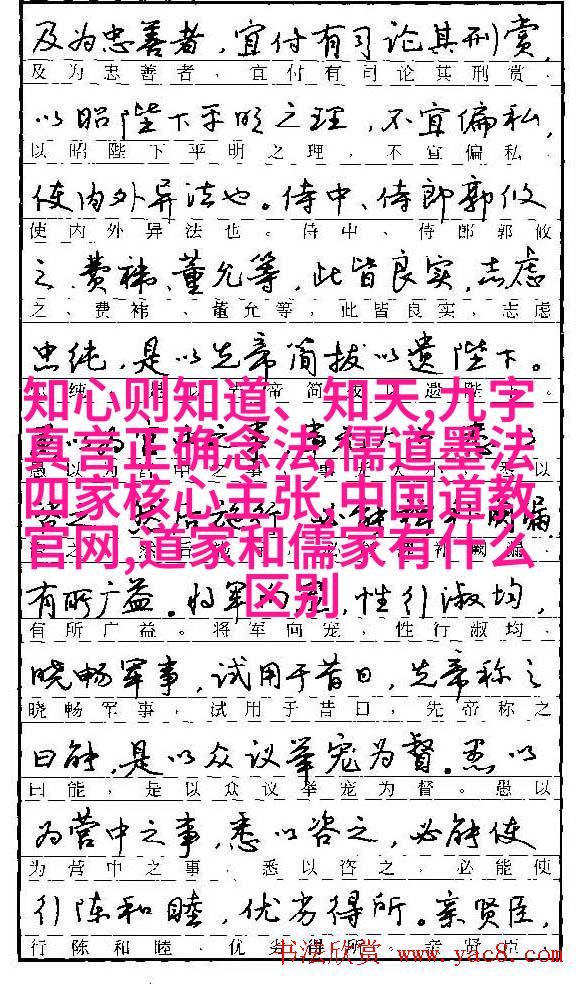 及为忠善者，宜付有司论其刑赏，
及为忠善者，宜付有司论其刑赏，
以昭陛下平明之理，不宜偏私，
以昭陛下平明之理，不宜偏私，
使内外异法也。侍中、侍郎郭攸
使内外异法也。侍中、侍郎郭攸
之、费祎、董允等，此皆良实，志虑
之、费祎、董允等，此皆良实，志虑
忠纯，是以先帝简拔以遗陛下。
知心则知道、知天,九字
真言正确念法,儒道墨法
四家核心主张,中国道教
官网,道家和儒家有什么
区别
有所广益。将军向宠，性行淑均，
有所广益。将军向宠，性行淑均，
晓畅军事，试用于昔日，先帝称之
晓畅军事，试用于昔日，先帝称之
曰能，是以众议举宠为督。愚以
曰能，是以众议举宠为督。愚以
为营中之事，悉以咨之，必能使
为营中之事，悉以咨之，必能使
行陈和睦，优劣得所。亲贤臣，
行陈和睦，优劣得所。亲贤臣，
书法欣赏 www.yac8.com